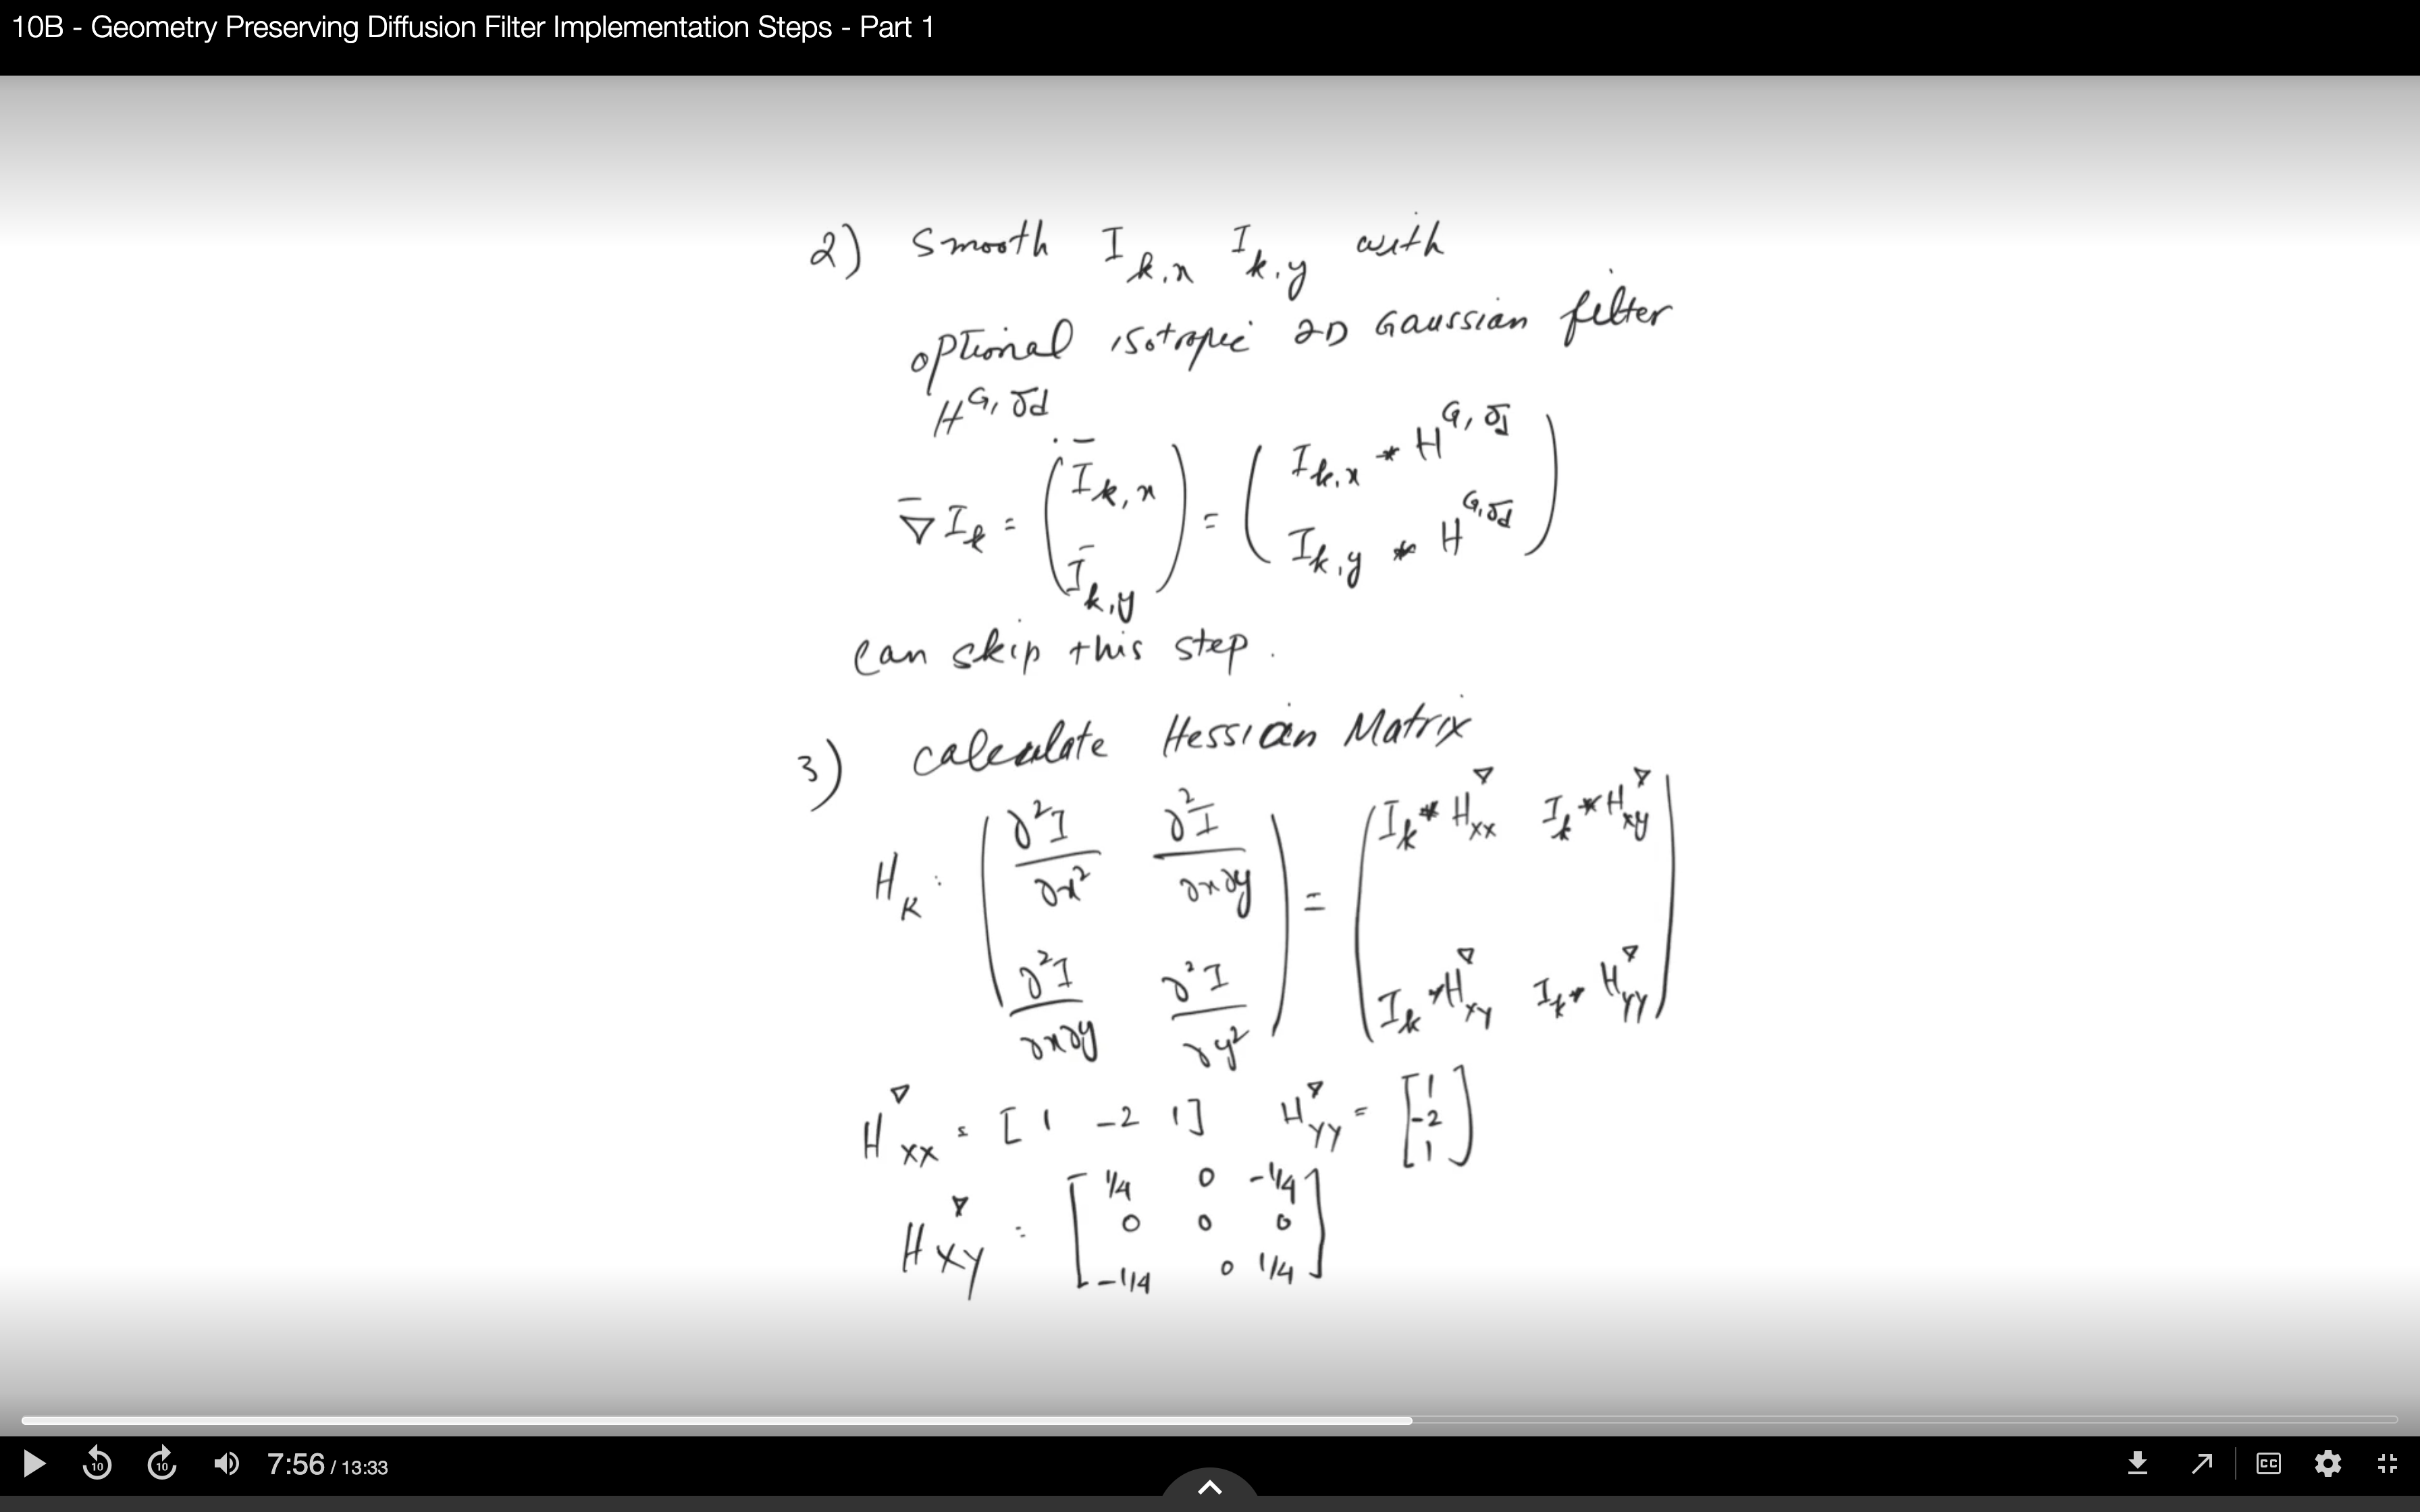 10B - Geometry Preserving Diffusion Filter Implementation Steps - Part 1
2) Smooth I_{k,x} I_{k,y} with
optional isotropic 2D Gaussian filter
H^{G,σd}
∇̄I_k = (Ī_{k,x} Ī_{k,y}) = (I_{k,x} * H^{G,σd} I_{k,y} * H^{G,σd})
can skip this step.
3) calculate Hessian Matrix
H_k = (∂²I/∂x² ∂²I/∂x∂y ; ∂²I/∂x∂y ∂²I/∂y²) = (I_k * H^∇_{xx} I_k * H^∇_{xy} ; I_k * H^∇_{xy} I_k * H^∇_{yy})
H^∇_{xx} = [1 -2 1] H^∇_{yy} = [1 -2 1]
H^∇_{xy} = [1/4 0 -1/4
0 0 0
-1/4 0 1/4]
10 10 7:56 / 13:33 CC